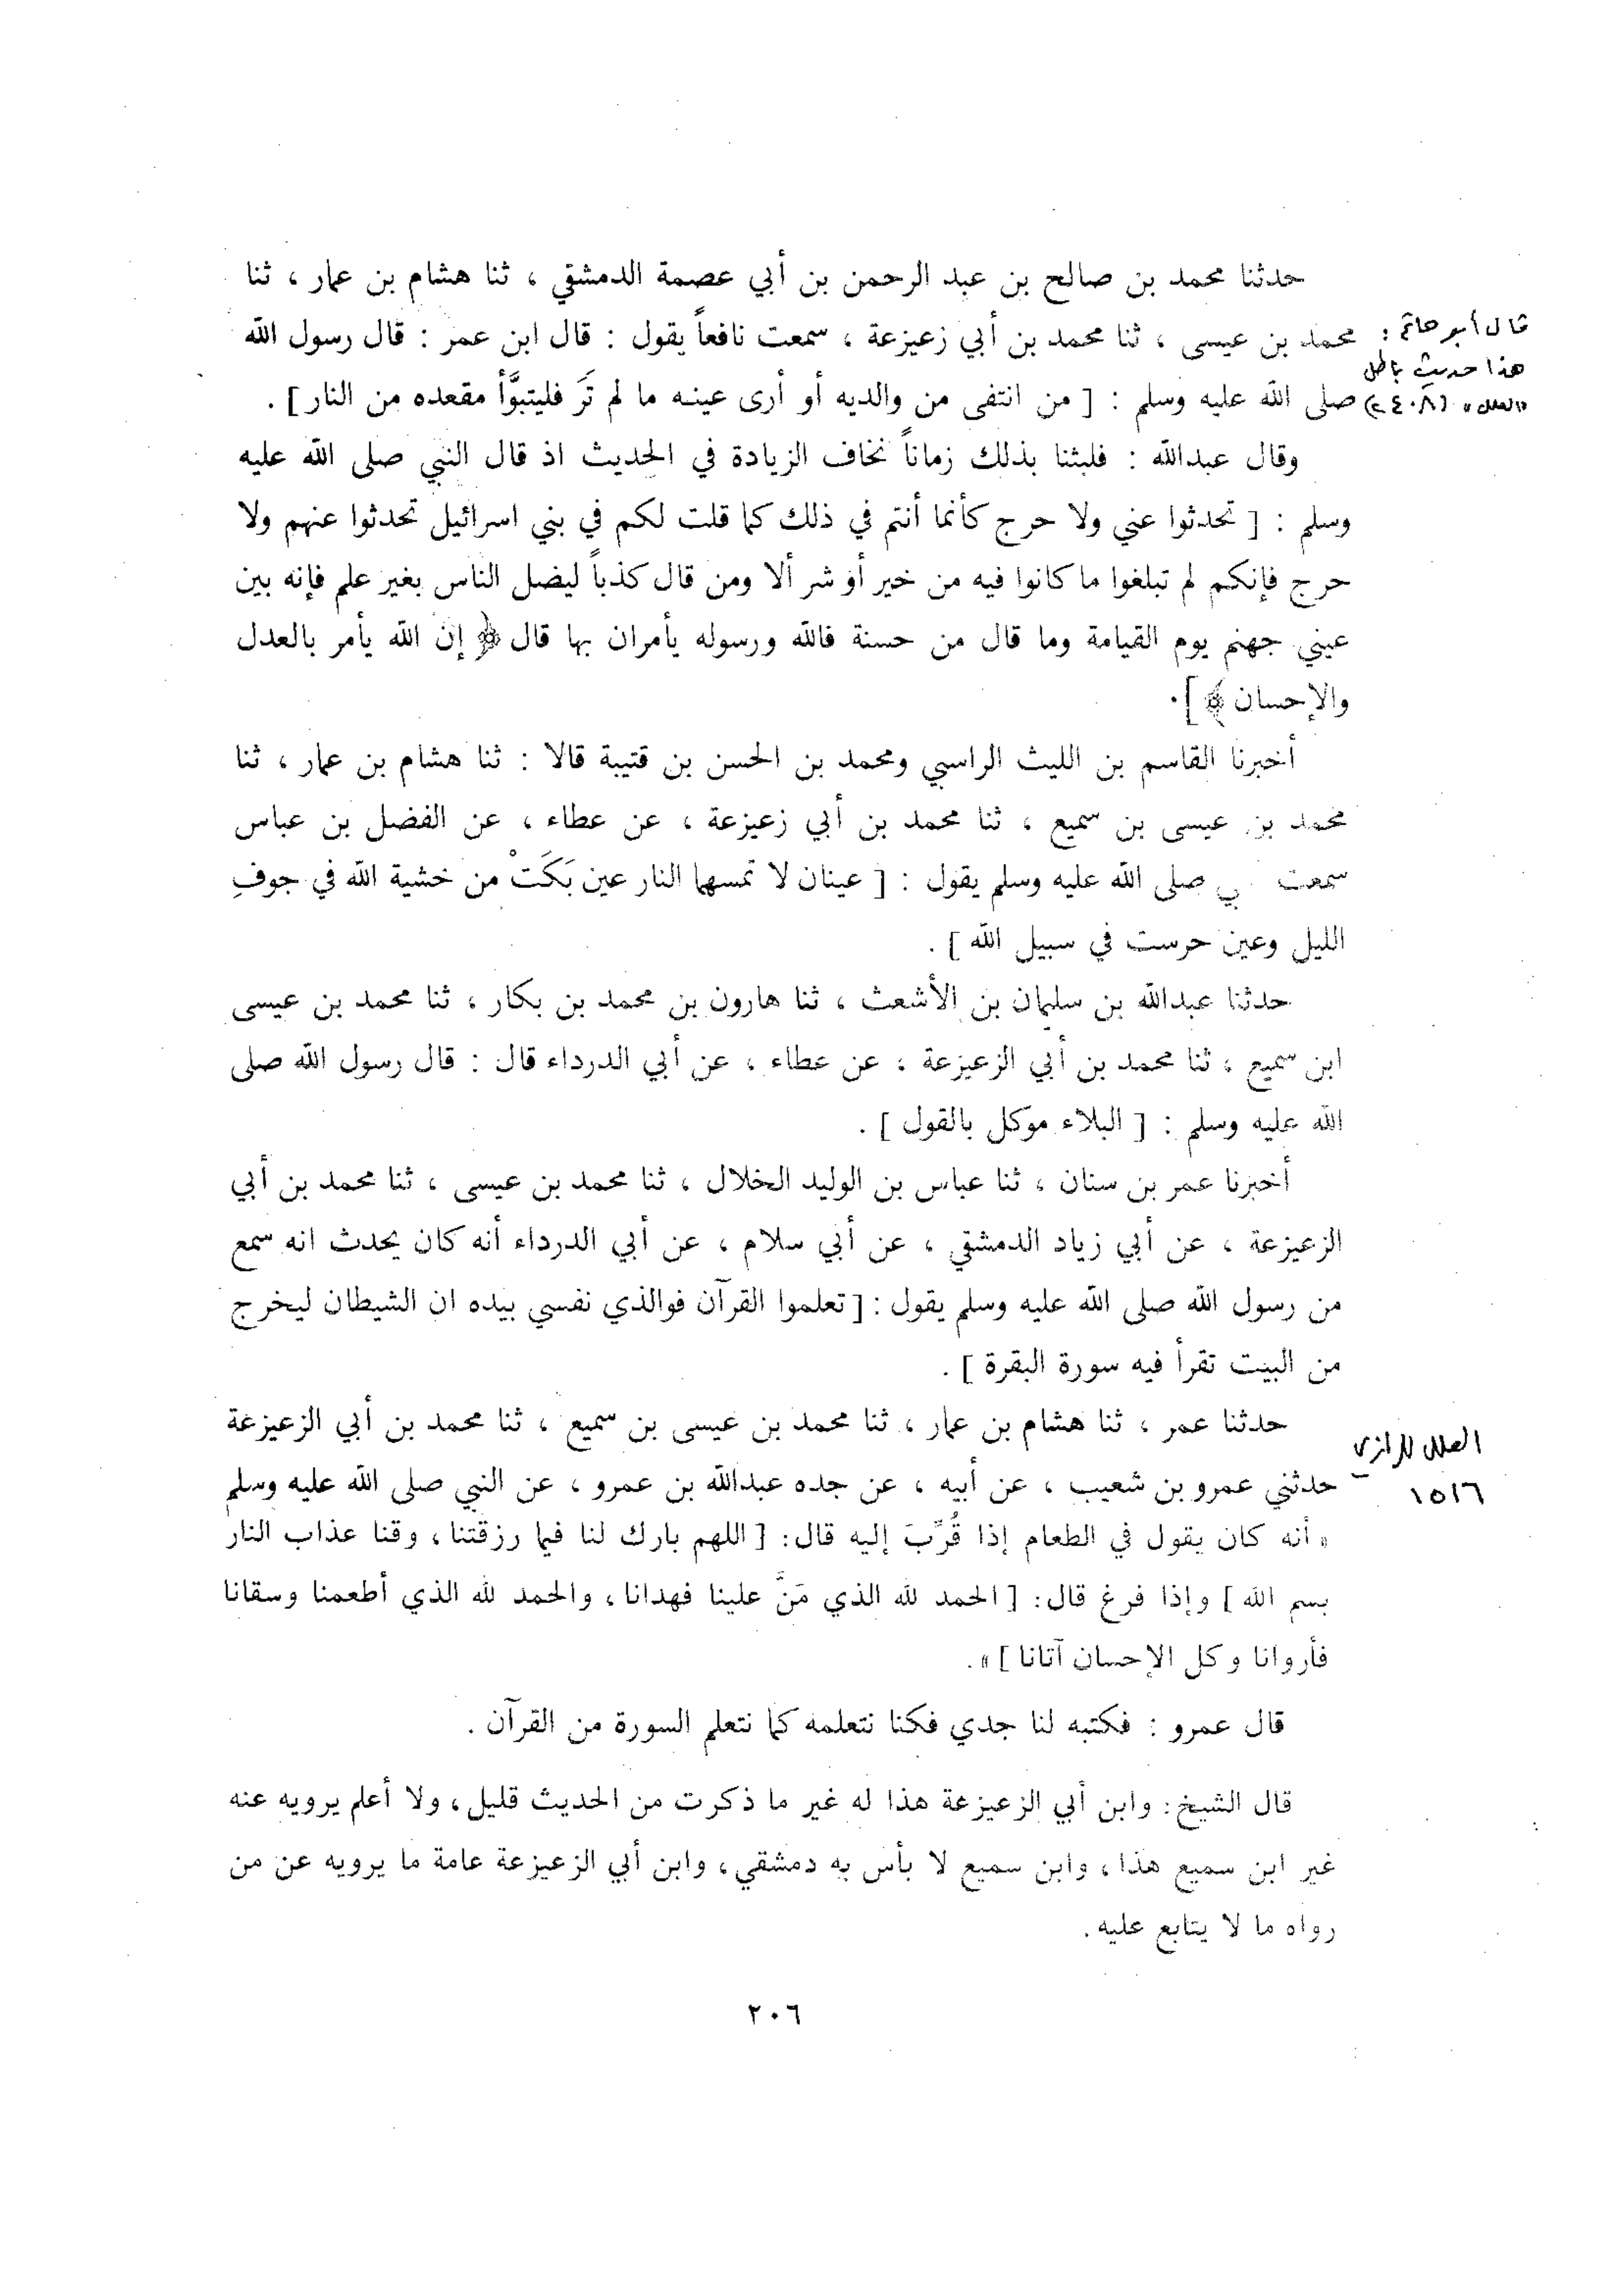 حدثنا محمد بن صالح بن عبد الرحمن بن أبي عصمة الدمشقي ، ثنا هشام بن عمار ، ثنا
محمد بن عيسى ، ثنا محمد بن أبي زعيزعة ، سمعت نافعاً يقول : قال ابن عمر : قال رسول الله
صلى الله عليه وسلم : [ من انتفى من والديه أو أرى عينه ما لم تَرَ فليتبوَّأ مقعده من النار ] .
قال أبو حاتم :
هذا حديث باطل
«العلل»
وقال عبدالله : فلبثنا بذلك زماناً نخاف الزيادة في الحديث اذ قال النبي صلى الله عليه
وسلم : [ تحدثوا عني ولا حرج كأنما أنتم في ذلك كما قلت لكم في بني اسرائيل تحدثوا عنهم ولا
حرج فإنكم لم تبلغوا ما كانوا فيه من خير أو شر ألا ومن قال كذباً ليضل الناس بغير علم فإنه بين
عيني جهنم يوم القيامة وما قال من حسنة فالله ورسوله يأمران بها قال ﴿ إن الله يأمر بالعدل
والإحسان ﴾ ] .
أخبرنا القاسم بن الليث الراسبي ومحمد بن الحسن بن قتيبة قالا : ثنا هشام بن عمار ، ثنا
محمد بن عيسى بن سميع ، ثنا محمد بن أبي زعيزعة ، عن عطاء ، عن الفضل بن عباس
سمعت صلى الله عليه وسلم يقول : [ عينان لا تمسهما النار عين بَكَتْ من خشية الله في جوفِ
الليل وعين حرست في سبيل الله ] .
حدثنا عبدالله بن سليمان بن الأشعث ، ثنا هارون بن محمد بن بكار ، ثنا محمد بن عيسى
ابن سميع ، ثنا محمد بن أبي الزعيزعة ، عن عطاء ، عن أبي الدرداء قال : قال رسول الله صلى
الله عليه وسلم : [ البلاء موكل بالقول ] .
أخبرنا عمر بن سنان ، ثنا عباس بن الوليد الخلال ، ثنا محمد بن عيسى ، ثنا محمد بن أبي
الزعيزعة ، عن أبي زياد الدمشقي ، عن أبي سلام ، عن أبي الدرداء أنه كان يحدث انه سمع
من رسول الله صلى الله عليه وسلم يقول : [ تعلموا القرآن فوالذي نفسي بيده ان الشيطان ليخرج
من البيت تقرأ فيه سورة البقرة ] .
حدثنا عمر ، ثنا هشام بن عمار ، ثنا محمد بن عيسى بن سميع ، ثنا محمد بن أبي الزعيزعة
حدثني عمرو بن شعيب ، عن أبيه ، عن جده عبدالله بن عمرو ، عن النبي صلى الله عليه وسلم
العلل للرازي
١٥١٦
« أنه كان يقول في الطعام إذا قُرِّبَ إليه قال: [ اللهم بارك لنا فيما رزقتنا ، وقنا عذاب النار
بسم الله ] وإذا فرغ قال: [ الحمد لله الذي مَنَّ علينا فهدانا ، والحمد لله الذي أطعمنا وسقانا
فأروانا وكل الإحسان آتانا ] ».
قال عمرو : فكتبه لنا جدي فكنا نتعلمه كما نتعلم السورة من القرآن .
قال الشيخ: وابن أبي الزعيزعة هذا له غير ما ذكرت من الحديث قليل، ولا أعلم يرويه عنه
غير ابن سميع هذا، وابن سميع لا بأس به دمشقي، وابن أبي الزعيزعة عامة ما يرويه عن من
رواه ما لا يتابع عليه.
٢٠٦